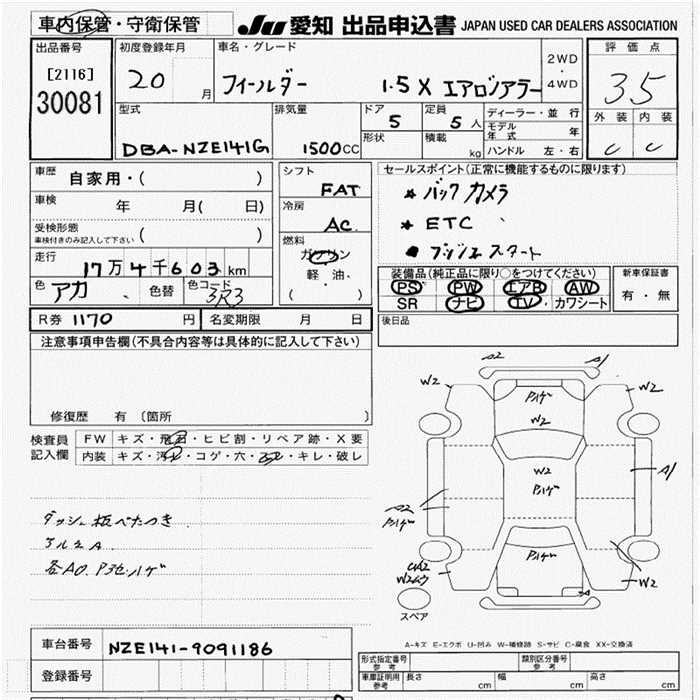 車内保管・守衛保管
JU 愛知 出品申込書 JAPAN USED CAR DEALERS ASSOCIATION
出品番号
[2116]
30081
初度登録年月
20 月
車名・グレード
フィールダー 1.5 X エアロツアラー
2WD
・
4WD
評価点
3.5
外装 内装
C C
型式
DBA-NZE141G
排気量
1500CC
ドア
5
形状
定員
5人
積載
kg
ディーラー・並行
モデル年式 年
ハンドル 左・右
車歴 自家用・( )
車検 年 月( 日)
受検形態
車検付きのみ記入して下さい ( )
走行 17万4千603km
色 アカ 色替 色コード 3R3
シフト
FAT
冷房
AC
燃料
ガソリン
軽油、
( )
セールスポイント(正常に機能するものに限ります)
★ バックカメラ
★ ETC
● プッシュスタート
装備品(純正品に限り○をつけてください)
PS PW エアB AW
SR ナビ TV カワシート
新車保証書
有・無
R券 1170 円 名変期限 月 日
後日品
注意事項申告欄(不具合内容等は具体的に記入して下さい)
修復歴 有 (箇所 )
検査員記入欄
FW キズ・飛石・ヒビ割・リペア跡・X要
内装 キズ・汚れ・コゲ・穴・スレ・キレ・破レ
ダッシュ板べたつき
アルミA.
各A0.P3色ハゲ
A2 A1
W2 W2
Pハゲ
W2
W2
Pハゲ
A1
A2
Pハゲ
Pハゲ
W2
A
スペア
A-キズ E-エクボ U-凹み W-補修跡 S-サビ C-腐食 XX-交換済
車台番号 NZE141-9091186
登録番号
形式指定番号
参考
類別区分番号
参考
車庫証明用
参考
長さ cm 幅 cm 高さ cm